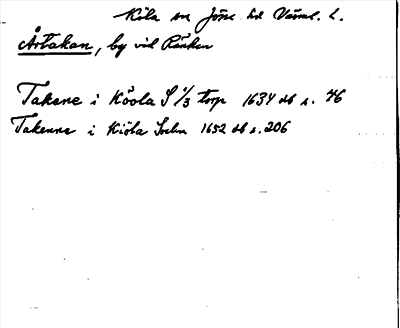 Köla sn Jösse hd Värml. l.
Årtakan, by vid Ränken
Takene i Köola S 1/3 torp 1634 db s. 46
Takenne i Kiöla Sochn 1652 db s. 206